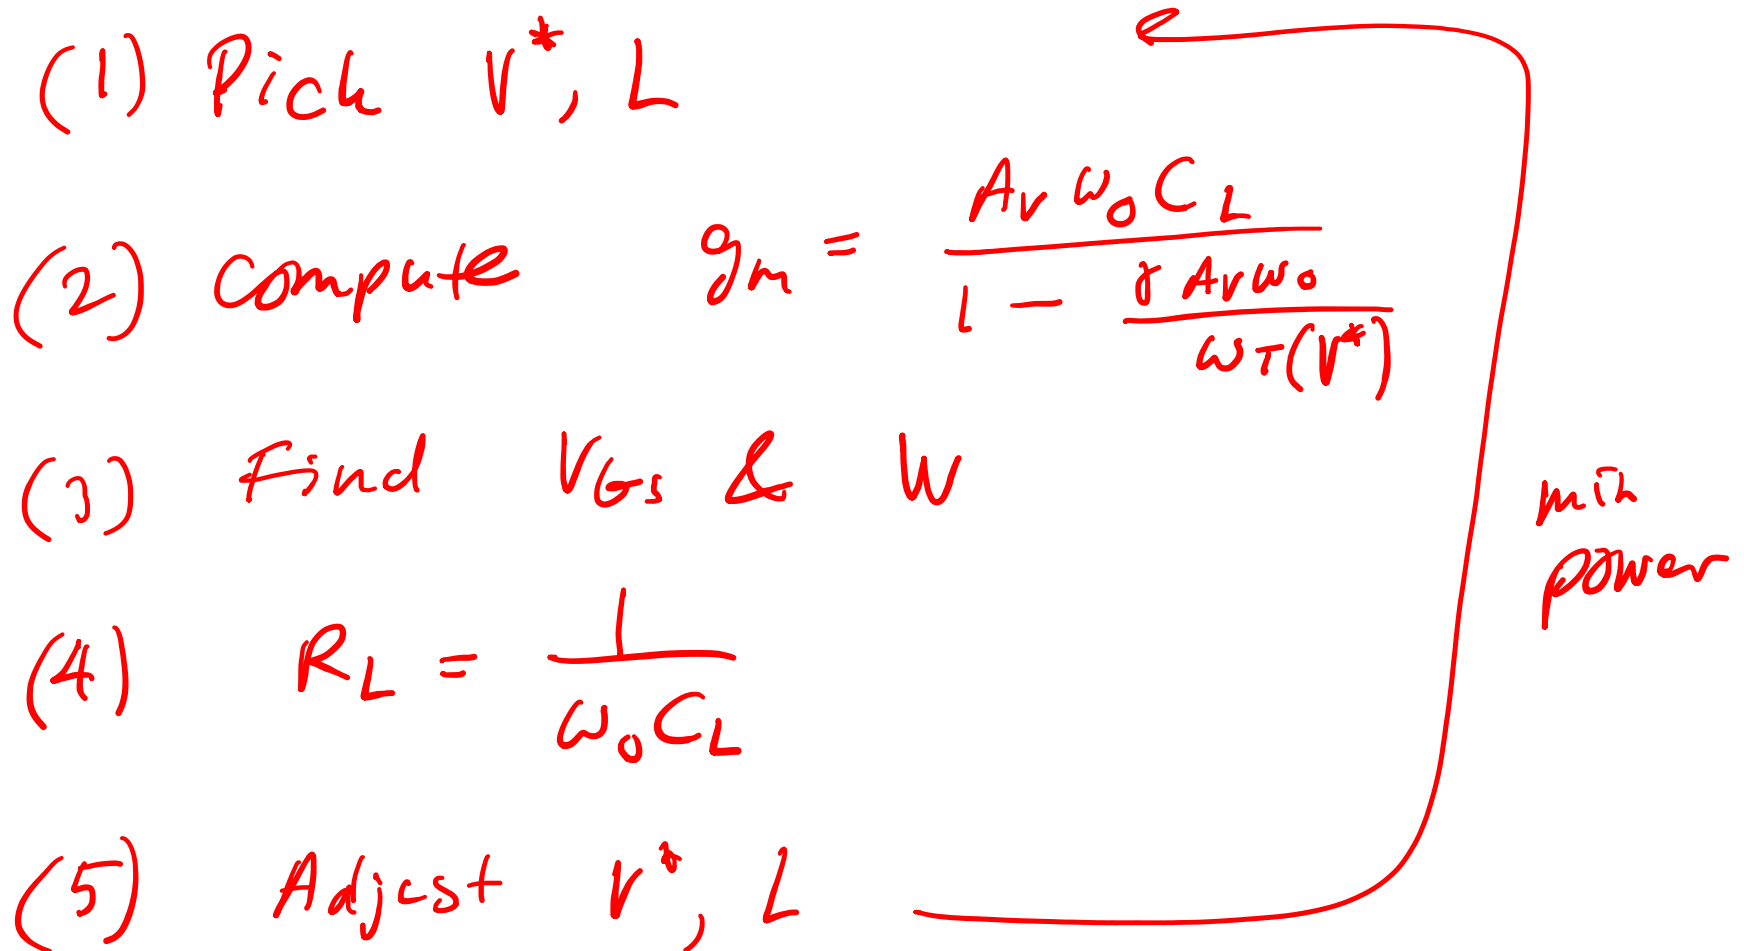 (1) Pick V*, L
(2) Compute gm = Av ω₀ C_L / (1 - γ Av ω₀ / ω_T(V*))
(3) Find V_GS & W
(4) R_L = 1 / (ω₀ C_L)
(5) Adjust V*, L
min
power